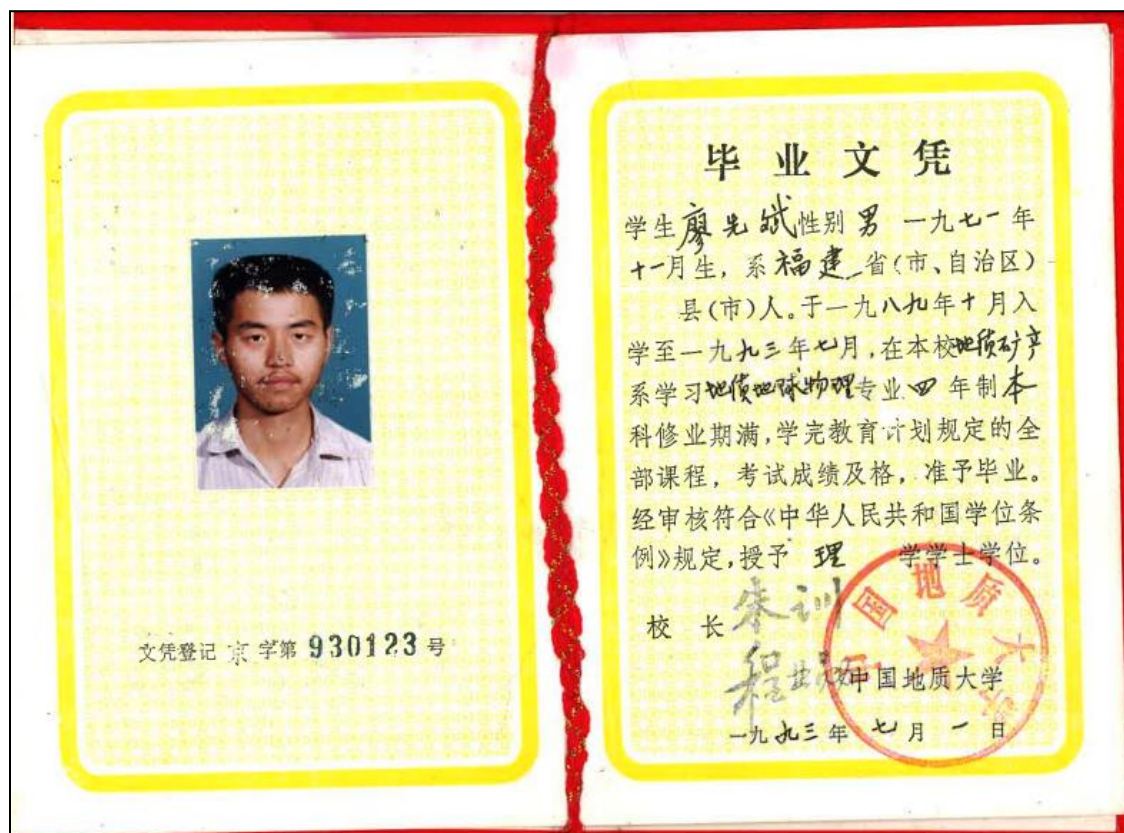 文凭登记 京 字第 930123 号
毕业文凭
学生 廖先斌 性别 男 一九七一年
十一月生，系 福建 省(市、自治区)
县(市)人。于一九八九年十月入
学至一九九三年七月，在本校地质矿产
系学习地质地球物理专业 四 年制本
科修业期满，学完教育计划规定的全
部课程，考试成绩及格，准予毕业。
经审核符合《中华人民共和国学位条
例》规定，授予 理 学学士学位。
校 长 朱训
中国地质大学
中国地质大学
一九九三年 七 月 一 日